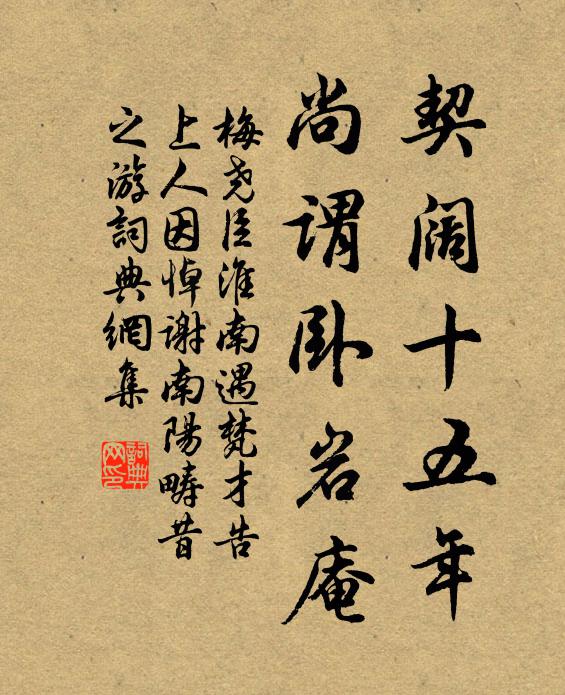 契阔十五年
尚谓卧岩庵
梅尧臣淮南遇梵才告
上人因悼谢南陽畴昔
之游詞典網集
詞典网印